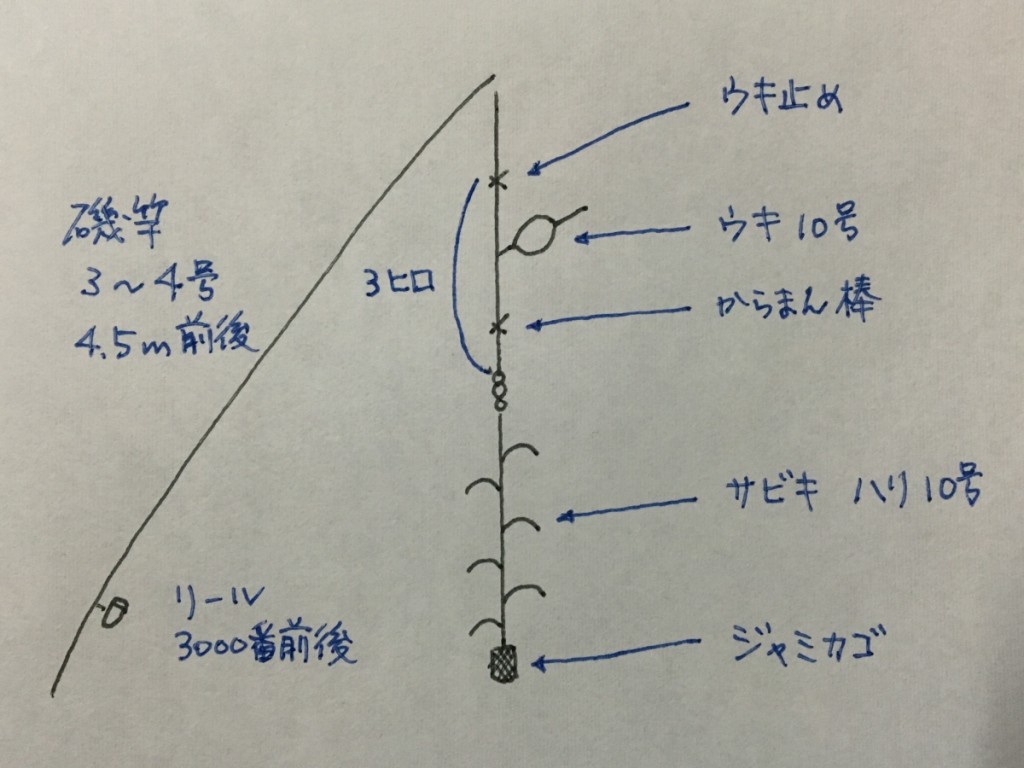 ウキ止め
磯竿
3～4号
4.5m前後
ウキ 10号
3ヒロ
からまん棒
サビキ ハリ10号
リール
3000番前後
ジャミカゴ